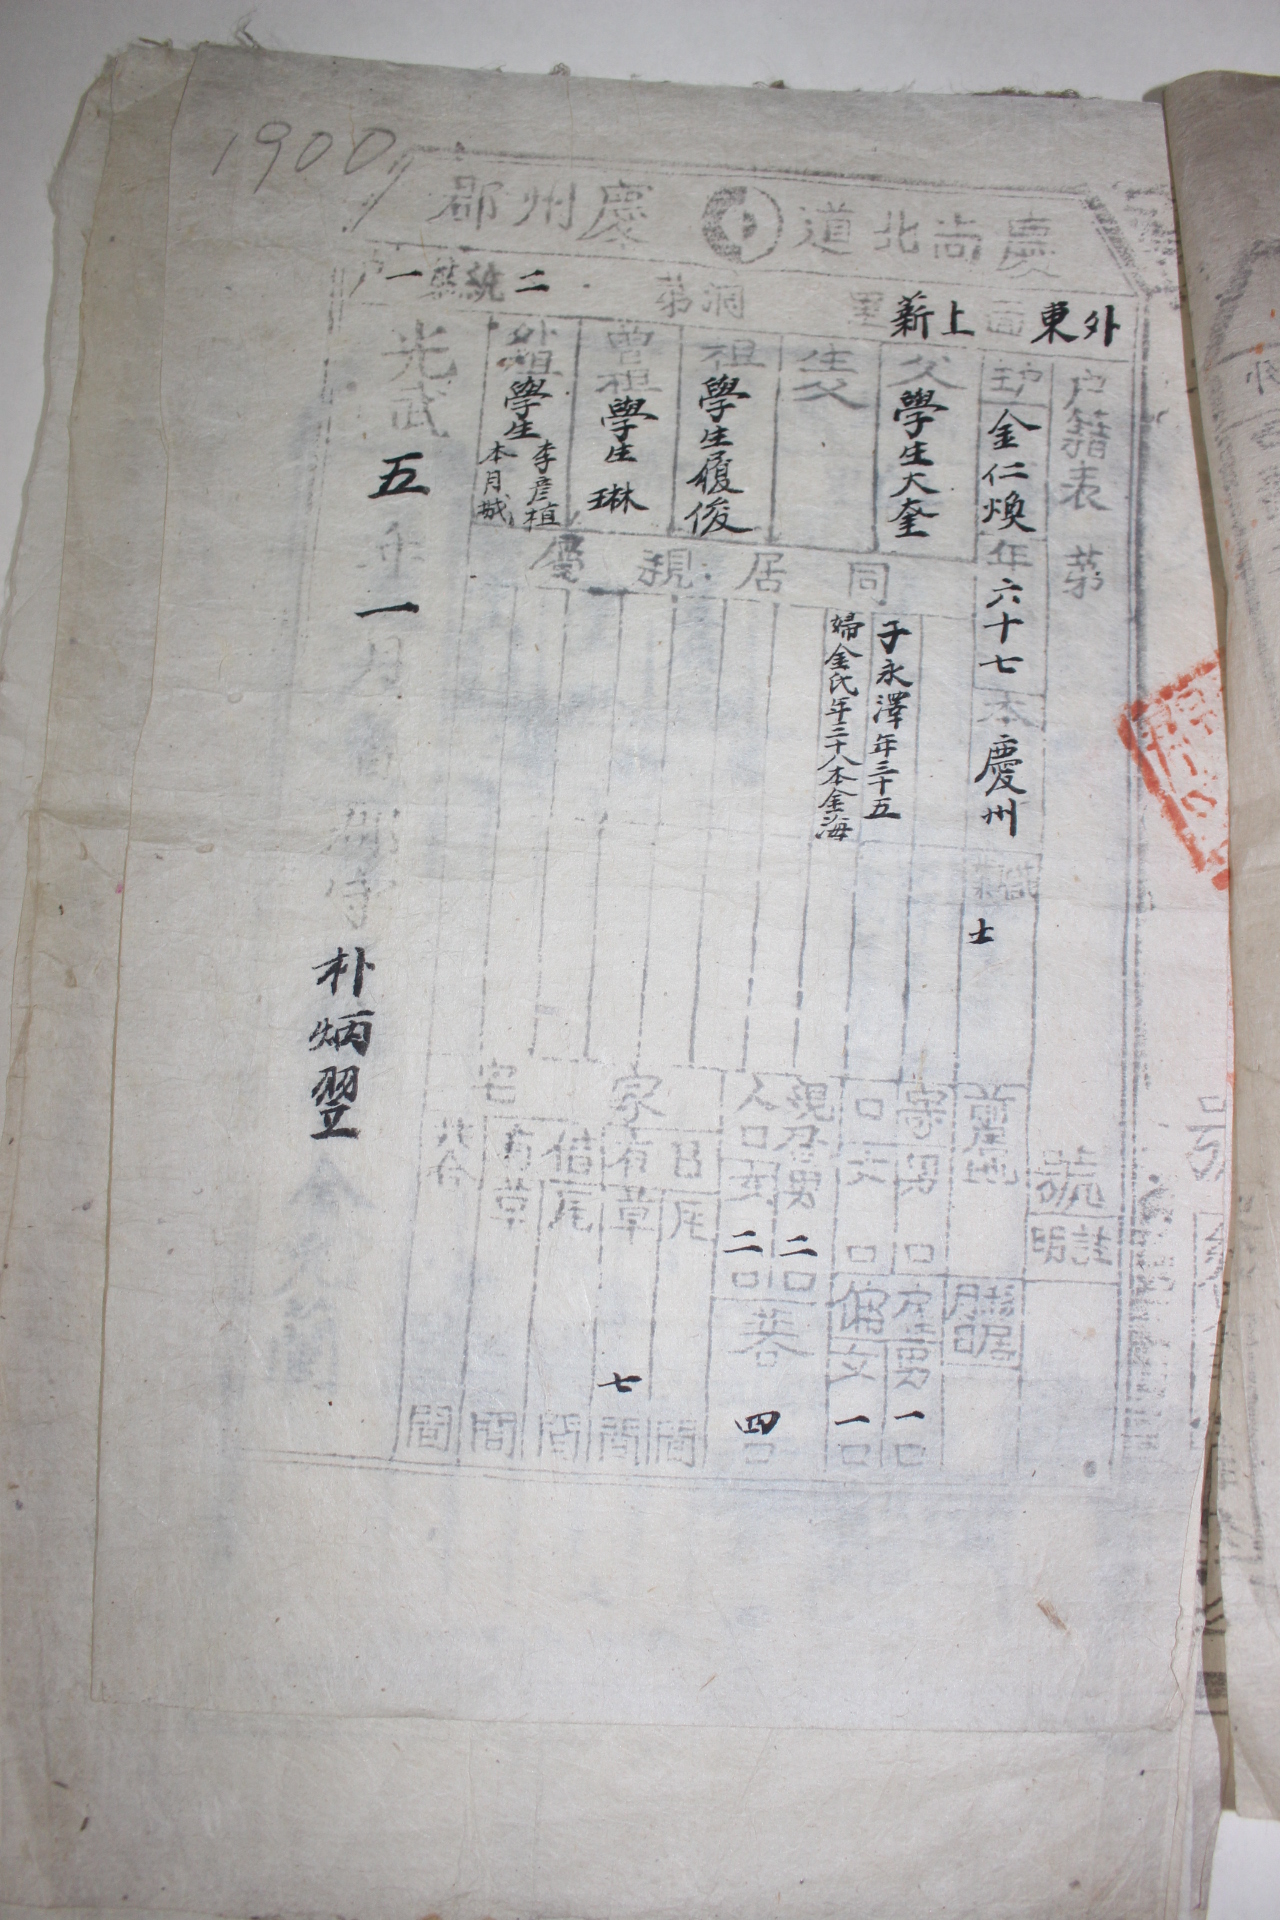 1900
慶尚北道 慶州郡
外東面上薪里 洞第 二統第一戶
戶籍表 第 號
註明
戶主 金仁煥 年六十七 本慶州 職業 士
前居地
移居
父 學生大奎
生父
祖 學生履俊
曾祖 學生琳
外祖 學生李彦植 本月城
同居親屬
子永澤年三十五
婦金氏年三十八本金海
寄口 男 口 女 口
雇傭 男一口 女一口
現存人口 男二口 女二口
共合 四口
家宅
己有 瓦 間 草七間
借有 瓦 間 草 間
共合 間
光武五年一月 日
郡守 朴炳翌